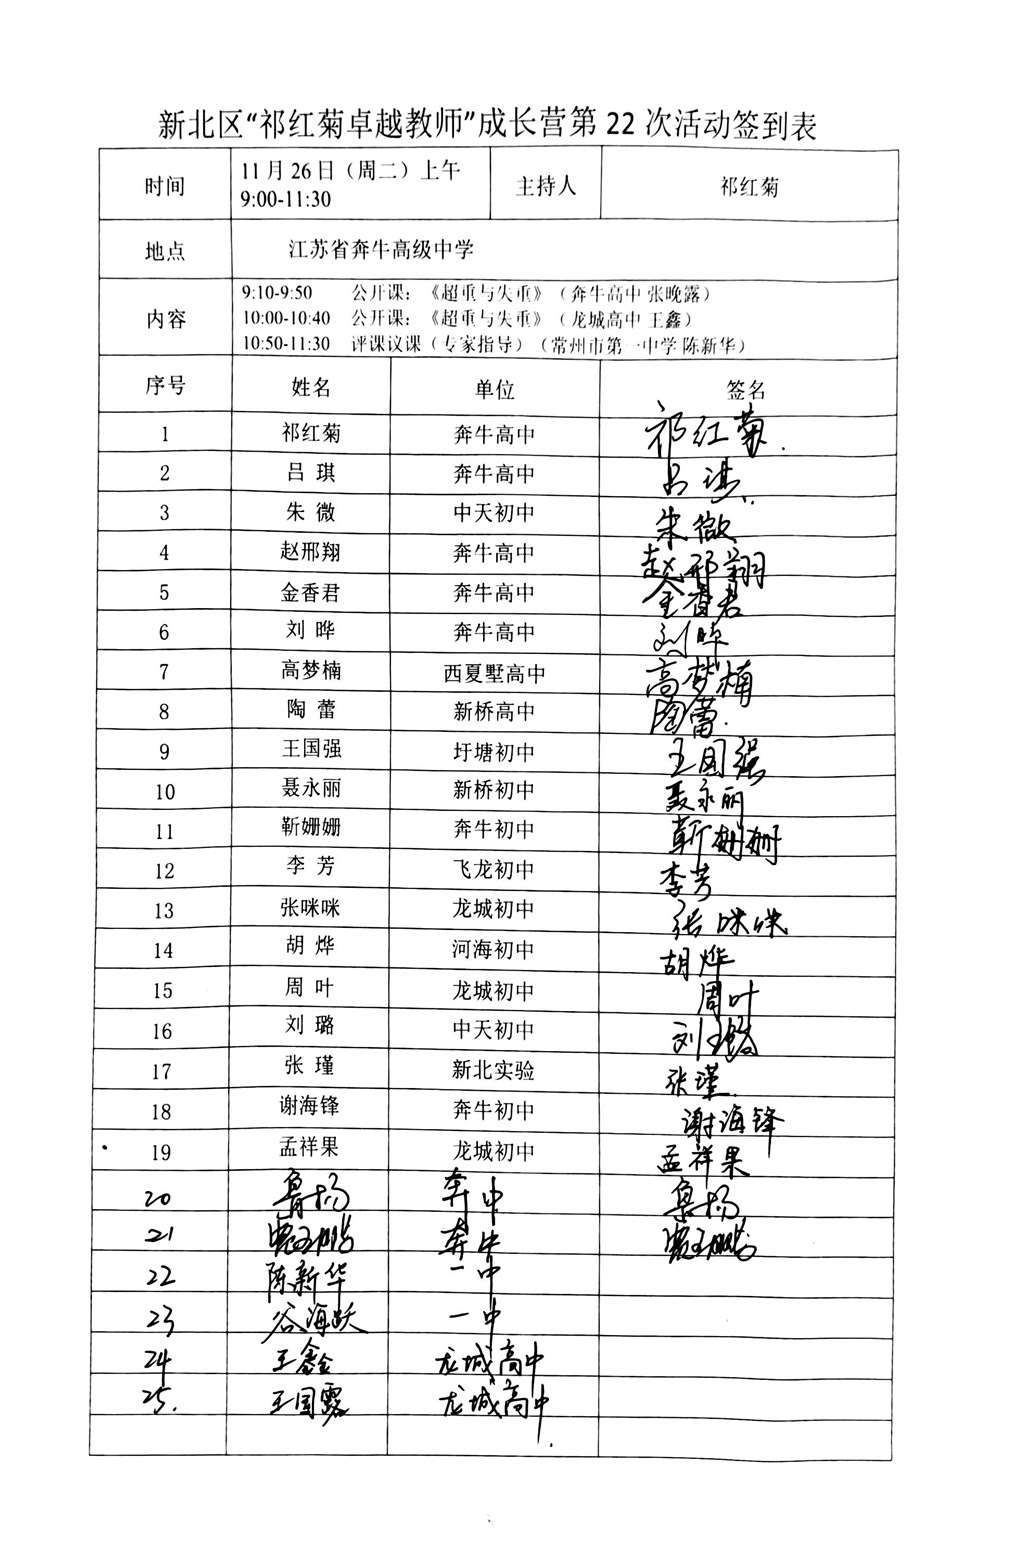 新北区“祁红菊卓越教师”成长营第 22 次活动签到表
时间 11月26日（周二）上午 9:00-11:30 主持人 祁红菊
地点 江苏省奔牛高级中学
内容 9:10-9:50 公开课：《超重与失重》（奔牛高中 张晚露）
10:00-10:40 公开课：《超重与失重》（龙城高中 王鑫）
10:50-11:30 评课议课（专家指导）（常州市第一中学 陈新华）
序号 姓名 单位 签名
1 祁红菊 奔牛高中 祁红菊.
2 吕 琪 奔牛高中 吕琪.
3 朱 微 中天初中 朱微
4 赵邢翔 奔牛高中 赵邢翔
5 金香君 奔牛高中 金香君
6 刘 晔 奔牛高中 刘晔
7 高梦楠 西夏墅高中 高梦楠
8 陶 蕾 新桥高中 陶蕾.
9 王国强 圩塘初中 王国强
10 聂永丽 新桥初中 聂永丽
11 靳姗姗 奔牛初中 靳姗姗
12 李 芳 飞龙初中 李芳
13 张咪咪 龙城初中 张咪咪
14 胡 烨 河海初中 胡烨
15 周 叶 龙城初中 周叶
16 刘 璐 中天初中 刘璐
17 张 瑾 新北实验 张瑾
18 谢海锋 奔牛初中 谢海锋
19 孟祥果 龙城初中 孟祥果
20 鲁杨 奔中 鲁杨
21 奔中
22 陈新华 一中
23 谷海跃 一中
24 王鑫 龙城高中
25. 王国露 龙城高中